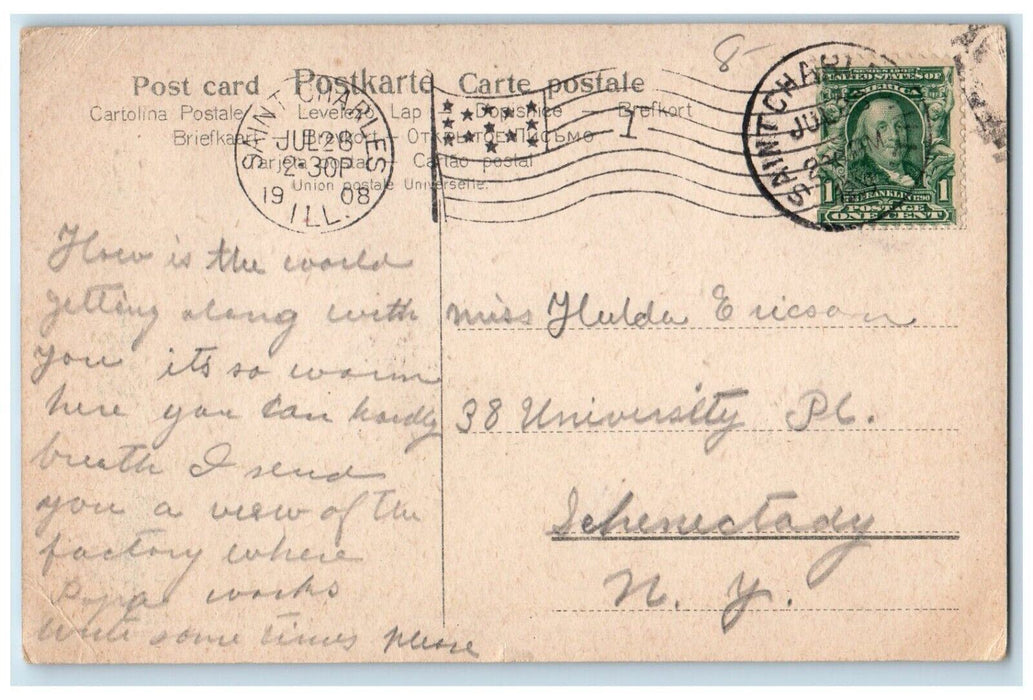 8-
Post card Postkarte Carte postale
Cartolina Postale Levelező Lap – Dopisnice – Brefkort
Briefkaart – Brevkort – Открытое письмо
Tarjeta postal – Cartão postal
Union postale Universelle.
SAINT CHARLES
JUL 28
2-30P
19 08
ILL.
1
SAINT CHARLES
JUL
UNITED STATES OF
AMERICA
1 FRANKLIN 1790 1
POSTAGE
ONE CENT
How is the world
getting along with
you its so warm
here you can hardly
breath I send
you a view of the
factory where
Papa works
write some times please
Miss Hulda Ericson
38 University Pl.
Schenectady
N. Y.